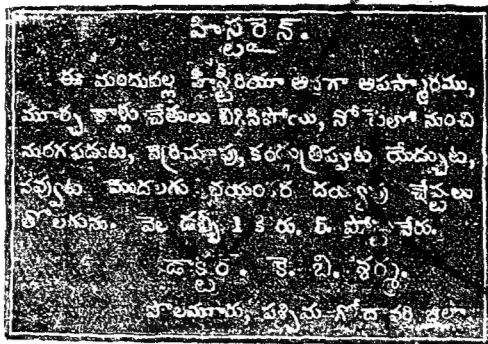 హిస్టరైన్.
ఈ మందువల్ల హిస్టీరియా అనగా అపస్మారము,
మూర్ఛ కాళ్లు చేతులు బిగిసిపోయి, నోటిలో నుంచి
నురగపడుట, వెర్రిచూపు, కండ్లుత్రిప్పుట యేడ్చుట,
నవ్వుట మొదలగు భయంకర దయ్యపు చేష్టలు
తొలగును. వెల డబ్బీ 1 కి రు. 5. పోస్టు వేరు.
డాక్టర్. కె. బి. శర్మ.
పాలమూరు, పశ్చిమ-గోదావరి జిల్లా